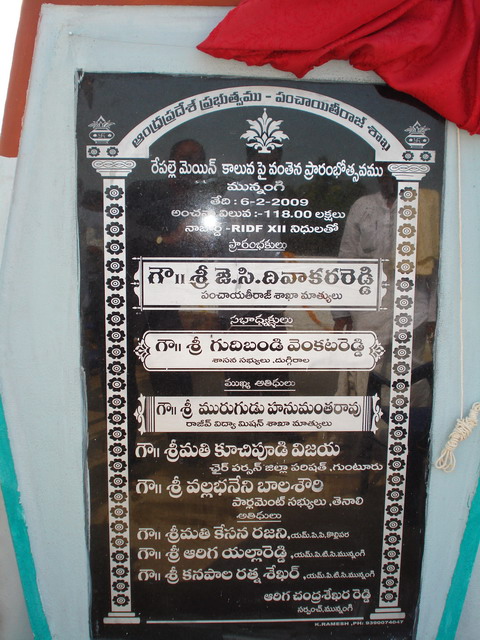 ఆంధ్రప్రదేశ్ ప్రభుత్వము - పంచాయితీరాజ్ శాఖ
రేపల్లె మెయిన్ కాలువ పై వంతెన ప్రారంభోత్సవము
మున్నంగి
తేది : 6-2-2009
అంచనా విలువ :-118.00 లక్షలు
నాబార్డ్ -RIDF XII నిధులతో
ప్రారంభకులు
గౌ॥ శ్రీ జె.సి.దివాకరరెడ్డి
పంచాయతీరాజ్ శాఖా మాత్యులు
సభాధ్యక్షులు
గౌ॥ శ్రీ గుదిబండి వెంకటరెడ్డి
శాసన సభ్యులు ,దుగ్గిరాల
ముఖ్య అతిధులు
గౌ॥ శ్రీ మురుగుడు హనుమంతరావు
రాజీవ్ విద్యా మిషన్ శాఖా మాత్యులు
గౌ॥ శ్రీమతి కూచిపూడి విజయ
ఛైర్ పర్సన్ జిల్లా పరిషత్ ,గుంటూరు
గౌ॥ శ్రీ వల్లభనేని బాలశౌరి
పార్లమెంట్ సభ్యులు ,తెనాలి
అతిధులు
గౌ॥ శ్రీమతి కేసన రజని ,యమ్.పి.పి,కొల్లిపర
గౌ॥ శ్రీ ఆరిగ యల్లారెడ్డి ,యమ్.పి.టి.సి,మున్నంగి
గౌ॥ శ్రీ కనపాల రత్న శేఖర్ ,యమ్.పి.టి.సి,మున్నంగి
ఆరిగ చంద్రశేఖర రెడ్డి
సర్పంచ్,మున్నంగి
K.RAMESH ,PH: 9390074047